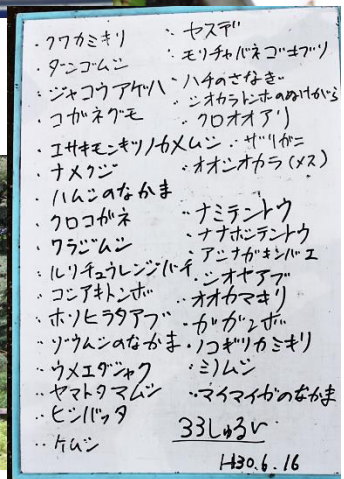 ・クワカミキリ
ダンゴムシ
・ジャコウアゲハ
・コガネグモ
・エサキモンキツノカメムシ
・ナメクジ
・ハムシのなかま
・クロコガネ
・ワラジムシ
・ルリチュウレンジバチ
・コシアキトンボ
・ホソヒラタアブ
・ゾウムシのなかま
・ウメエダシャク
・ヤマトタマムシ
・ヒシバッタ
・ケムシ
・ヤスデ
・モリチャバネゴキブリ
・ハチのさなぎ
・シオカラトンボのぬけがら
・クロオオアリ
・ザリガニ
・オオシオカラ(メス)
・ナミテントウ
・ナナホシテントウ
・アシナガキンバエ
・シオヤアブ
・オオカマキリ
・ガガンボ
・ノコギリカミキリ
・ミノムシ
・マイマイガのなかま
33しゅるい
H30.6.16